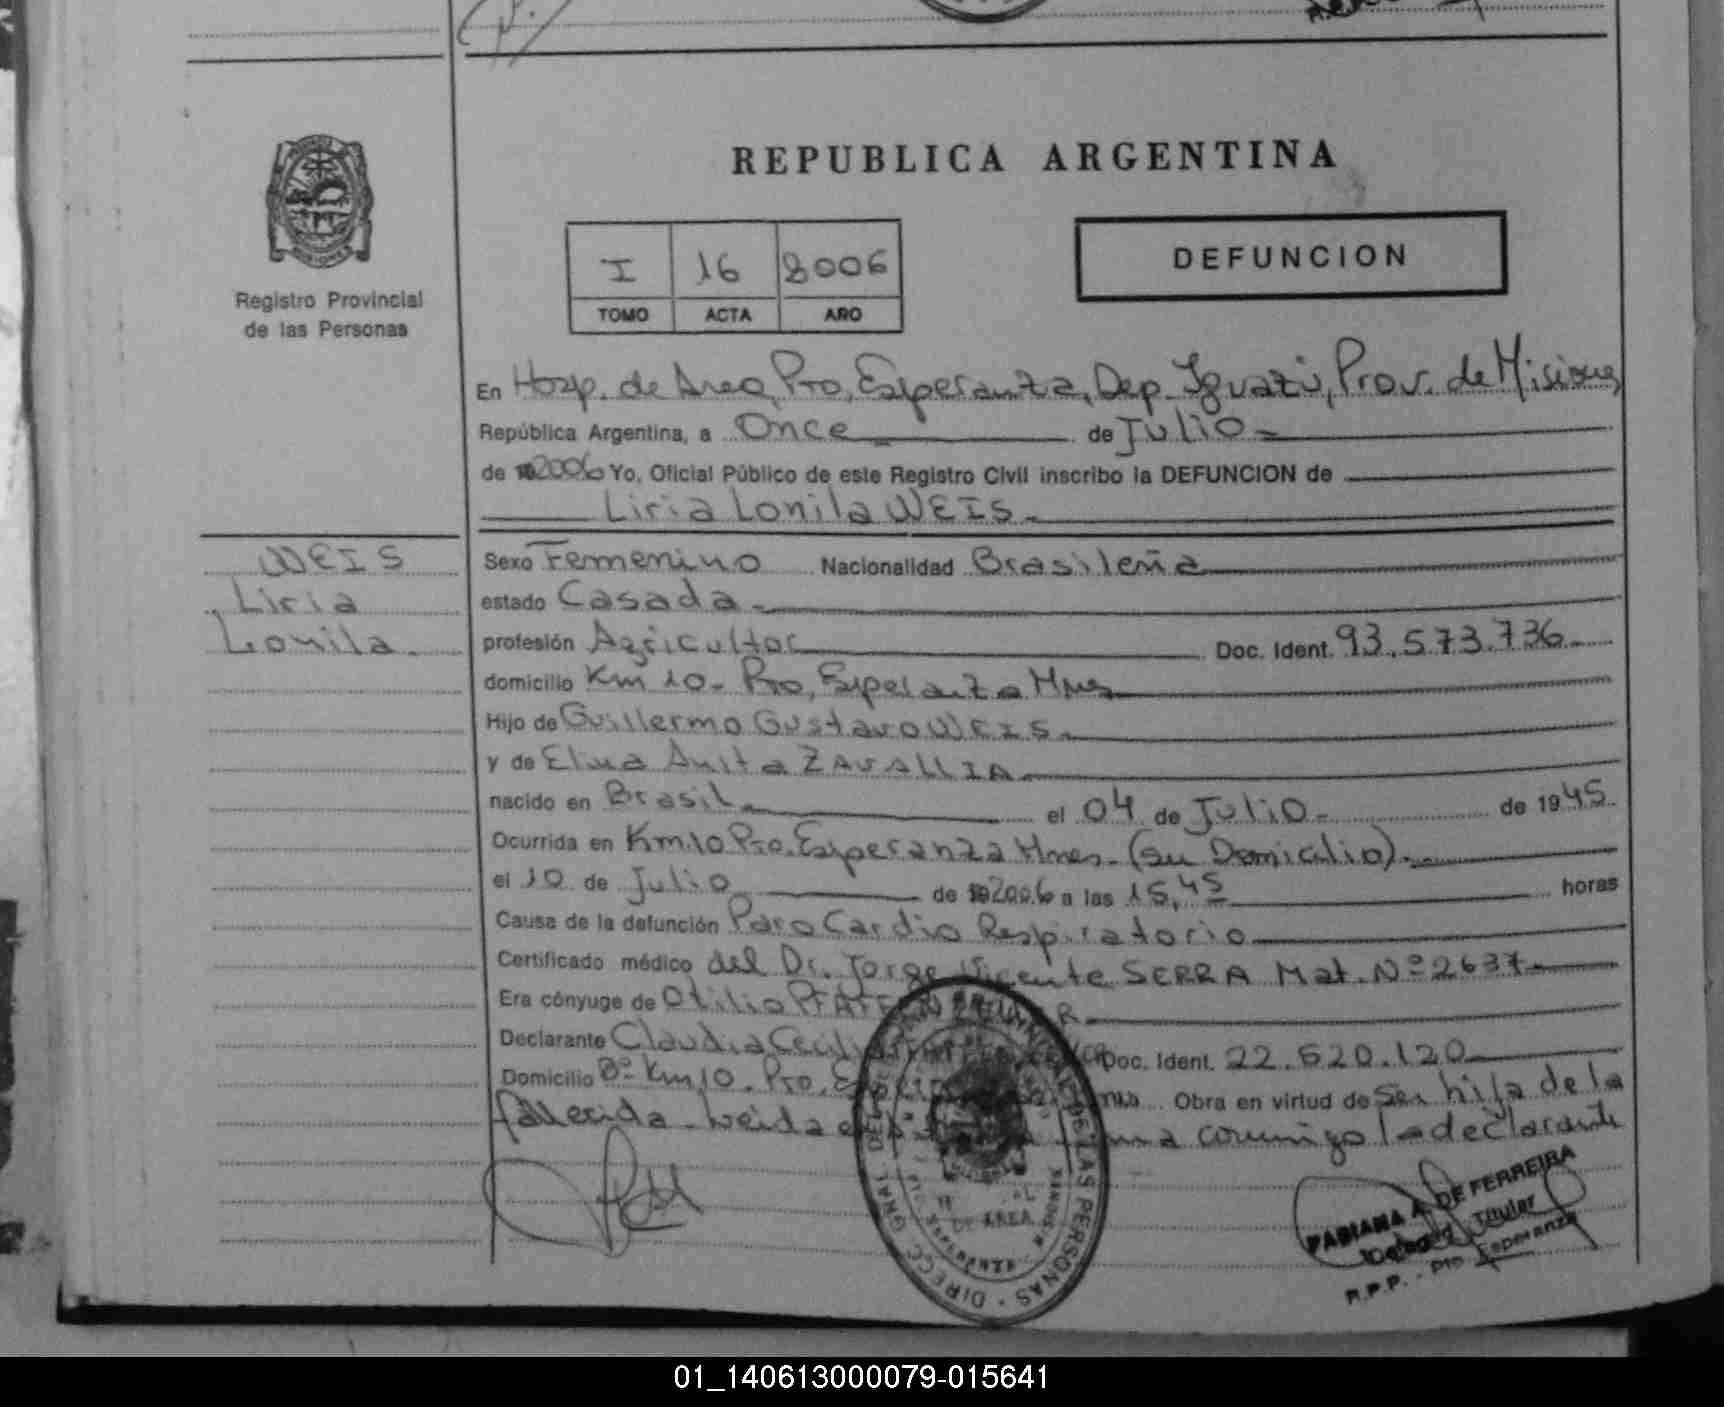 REPUBLICA ARGENTINA
MISIONES
Registro Provincial
de las Personas
I 16 2006
TOMO ACTA AÑO
DEFUNCION
En Hosp. de Area, Pto, Esperanza, Dep. Iguazú, Prov. de Misiones
República Argentina, a Once de Julio
de 2006 Yo, Oficial Público de este Registro Civil inscribo la DEFUNCION de
Liria Lonila WEIS.
WEIS
Liria
Lonila.
Sexo Femenino Nacionalidad Brasileña
estado Casada.
profesión Agricultor Doc. Ident. 93.573.736
domicilio Km 10. Pto, Esperanza Mnes
Hijo de Guillermo Gustavo WEIS.
y de Elina Anita ZAVALLIA.
nacido en Brasil el 04 de Julio. de 1945.
Ocurrida en Km.10 Pto. Esperanza Mnes. (su Domicilio).
el 10 de Julio de 2006 a las 15,45 horas
Causa de la defunción Paro Cardio Respiratorio
Certificado médico del Dr. Jorge Vicente SERRA Mat. Nº 2637
Era cónyuge de Otilio
Declarante Claudia Doc. Ident. 22.620.120
Domicilio Bº Km 10. Pto. Obra en virtud de ser hija de la
fallecida. Leida conmigo la declarante
DIRECC. GRAL. DEL DE LAS PERSONAS
DE AREA
FABIANA A. DE FERREIRA
Titular
R.P.P. - Pto Esperanza
01_140613000079-015641